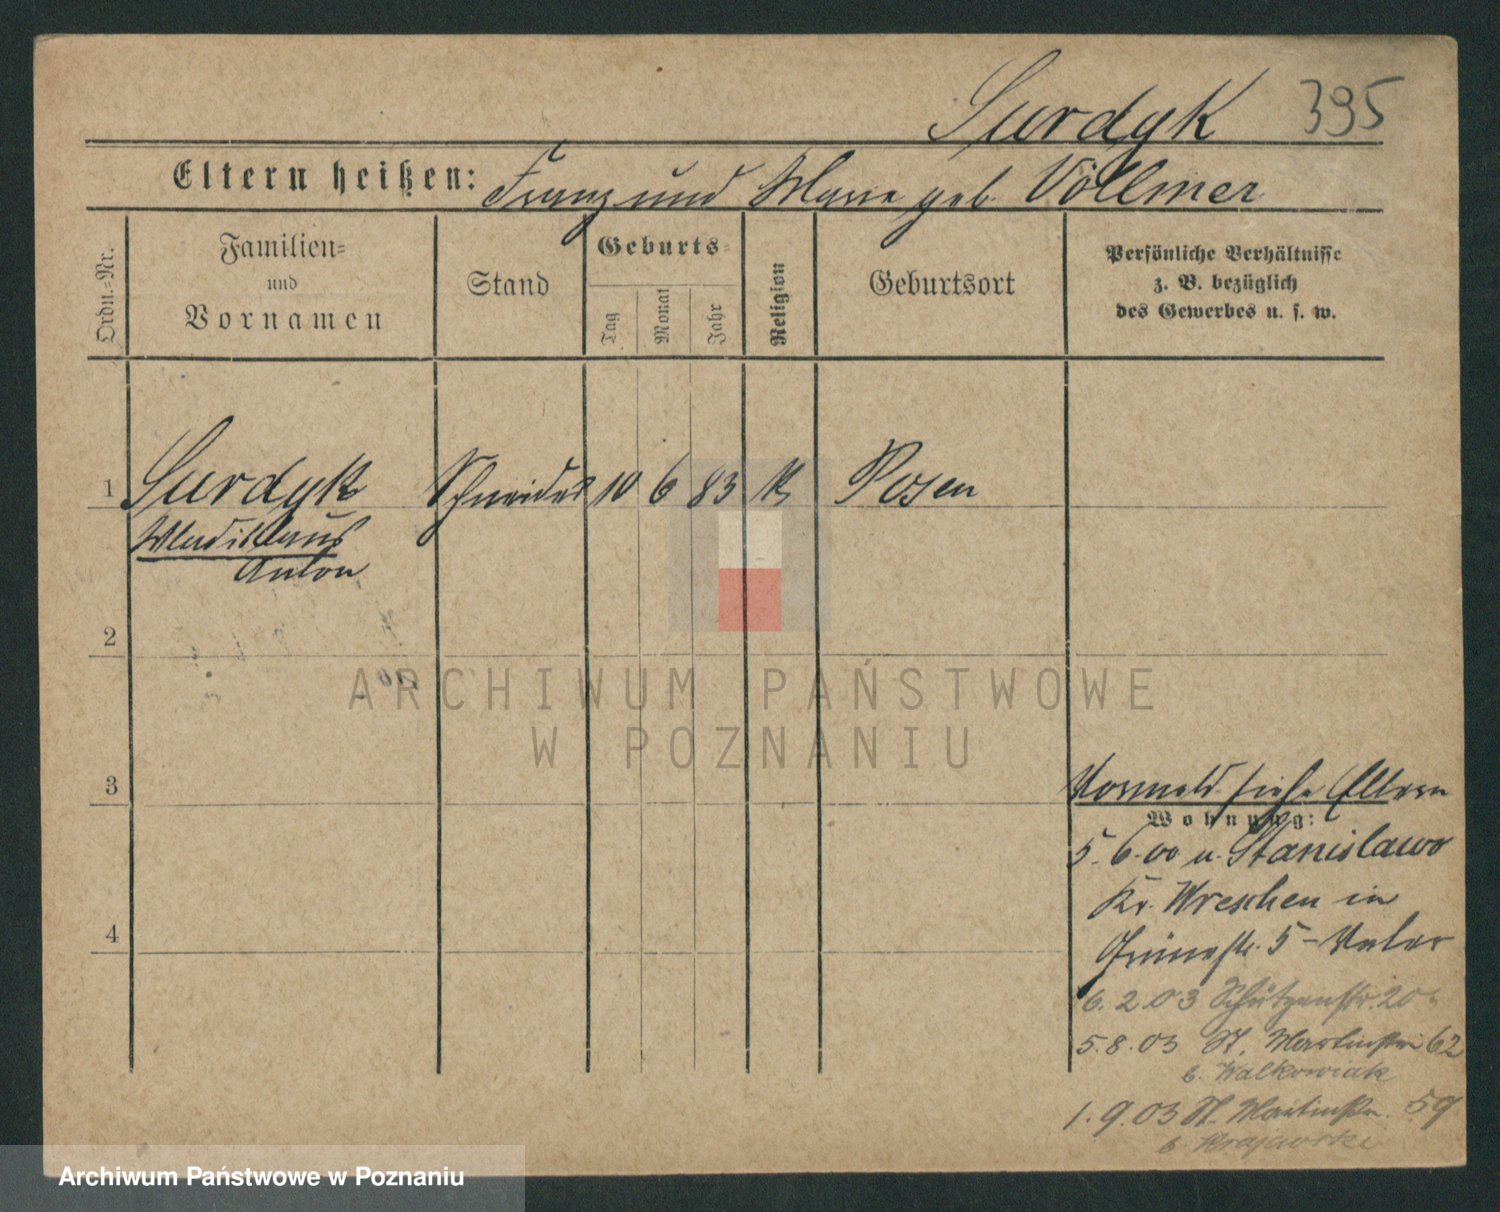 Surdyk 395
Eltern heißen: Franz und Marie geb. Vollmer
Ordn.=Nr.
Familien=
und
Vornamen
Stand
Geburts=
Tag
Monat
Jahr
Religion
Geburtsort
Persönliche Verhältnisse
z. B. bezüglich
des Gewerbes u. s. w.
1 Surdyk Schneider 10 6 83 K Posen
Wladislaus
Anton
2
ARCHIWUM PAŃSTWOWE
W POZNANIU
3
Vormeld. siehe Eltern
Wohnung:
5. 6. 00 u. Stanislawo
Kr. Wreschen in
Grünestr. 5 - Vater
4
6. 2. 03 Schützenstr. 20
5. 8. 03 St. Martinstr. 62
b. Walkowiak
1. 9. 03 St. Martinstr. 59
b.
Archiwum Państwowe w Poznaniu